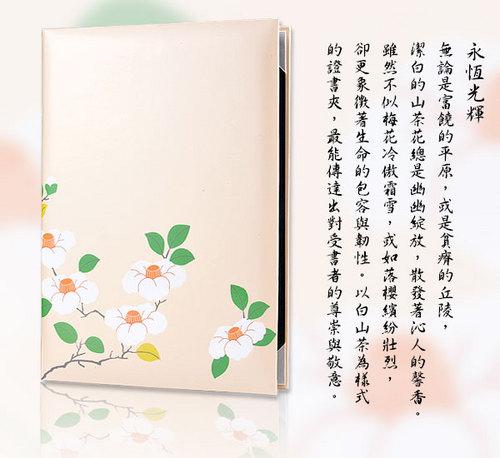 永恆光輝
無論是富饒的平原，或是貧瘠的丘陵，
潔白的山茶花總是幽幽綻放，散發著沁人的馨香。
雖然不似梅花冷傲霜雪，或如落櫻繽紛壯烈，
卻更象徵著生命的包容與韌性。以白山茶為樣式
的證書夾，最能傳達出對受書者的尊崇與敬意。